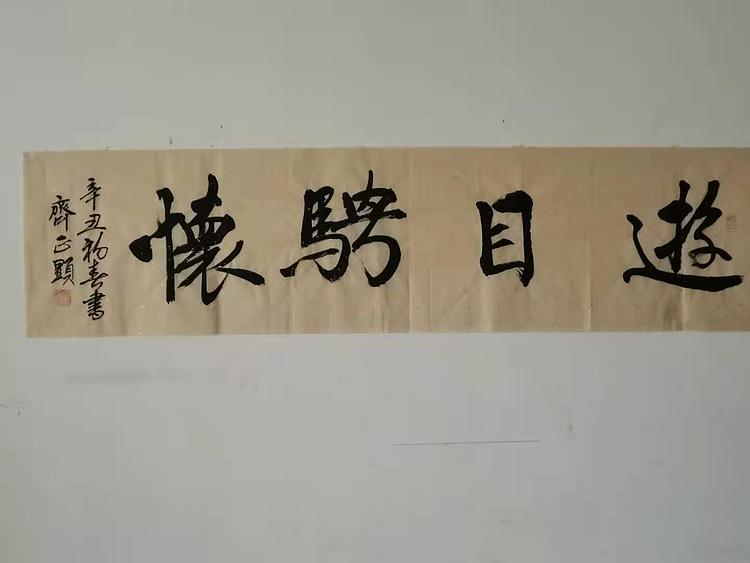 遊目騁懷
辛丑初春書
齊正顕